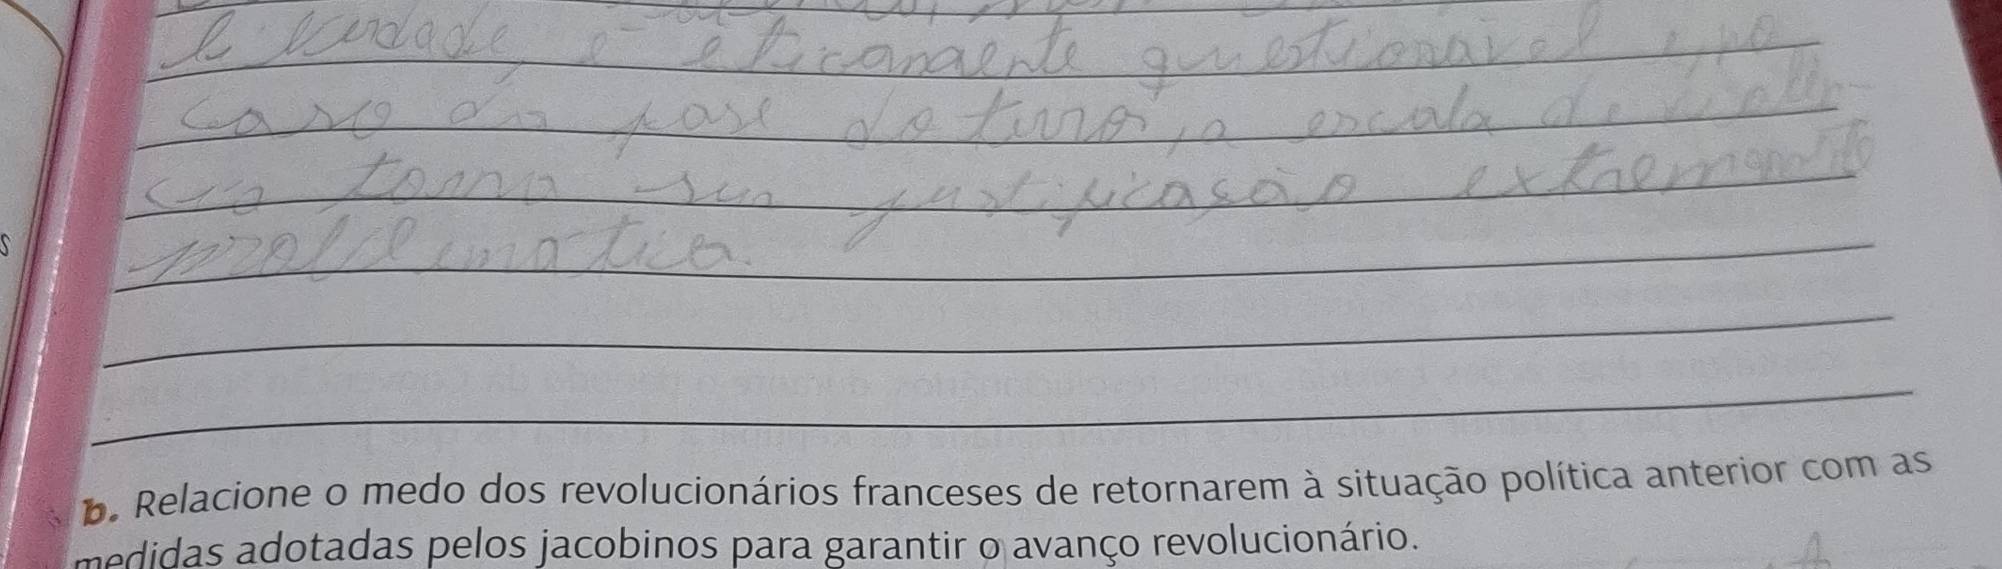 e verdade, é eticamente questionável e, no
caso da fase do terror, a escala de violên-
cia torna sua justificasão extremamente
problemática.
b. Relacione o medo dos revolucionários franceses de retornarem à situação política anterior com as
medidas adotadas pelos jacobinos para garantir o avanço revolucionário.